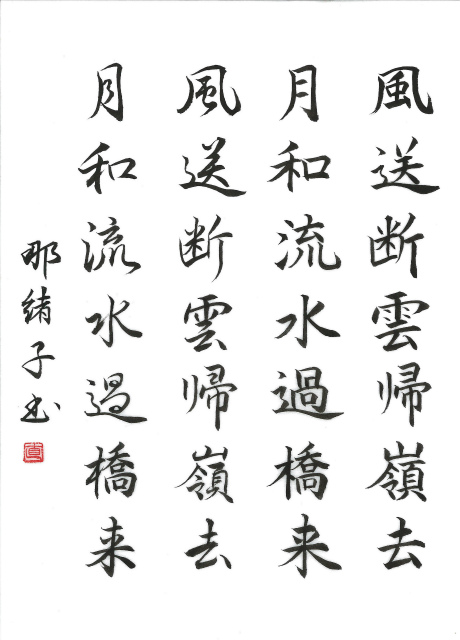 風送断雲帰嶺去
月和流水過橋来
風送断雲帰嶺去
月和流水過橋来
那緒子书